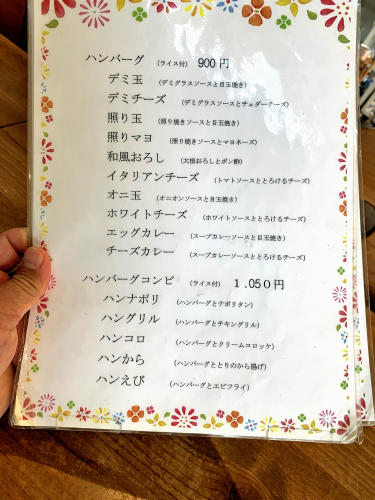 ハンバーグ (ライス付) 900円
デミ玉 (デミグラスソースと目玉焼き)
デミチーズ (デミグラスソースとチェダーチーズ)
照り玉 (照り焼きソースと目玉焼き)
照りマヨ (照り焼きソースとマヨネーズ)
和風おろし (大根おろしとポン酢)
イタリアンチーズ (トマトソースととろけるチーズ)
オニ玉 (オニオンソースと目玉焼き)
ホワイトチーズ (ホワイトソースととろけるチーズ)
エッグカレー (スープカレーソースと目玉焼き)
チーズカレー (スープカレーソースととろけるチーズ)
ハンバーグコンビ (ライス付) 1.050円
ハンナポリ (ハンバーグとナポリタン)
ハングリル (ハンバーグとチキングリル)
ハンコロ (ハンバーグとクリームコロッケ)
ハンから (ハンバーグととりのから揚げ)
ハンえび (ハンバーグとエビフライ)